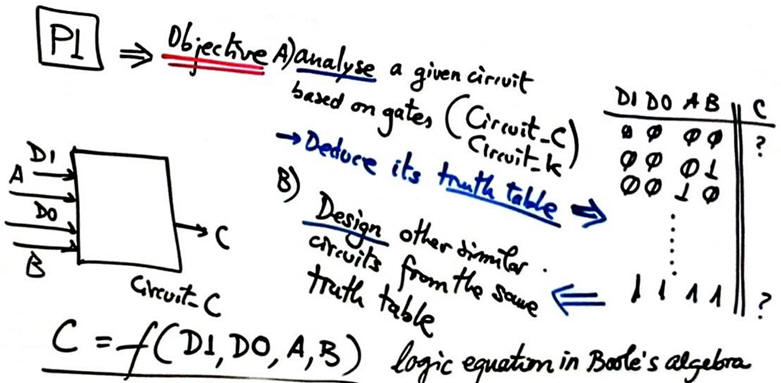 P1 ⇒ Objective A) analyse a given circuit
based on gates (Circuit_C
Circuit_k)
→ Deduce its truth table ⇒
B) Design other similar
circuits from the same
truth table
D1 D0 A B C
0 0 0 0 ?
0 0 0 1
0 0 1 0
1 1 1 1 ?
D1
A
D0
B
C
Circuit_C
C = f(D1, D0, A, B) logic equation in Boole's algebra